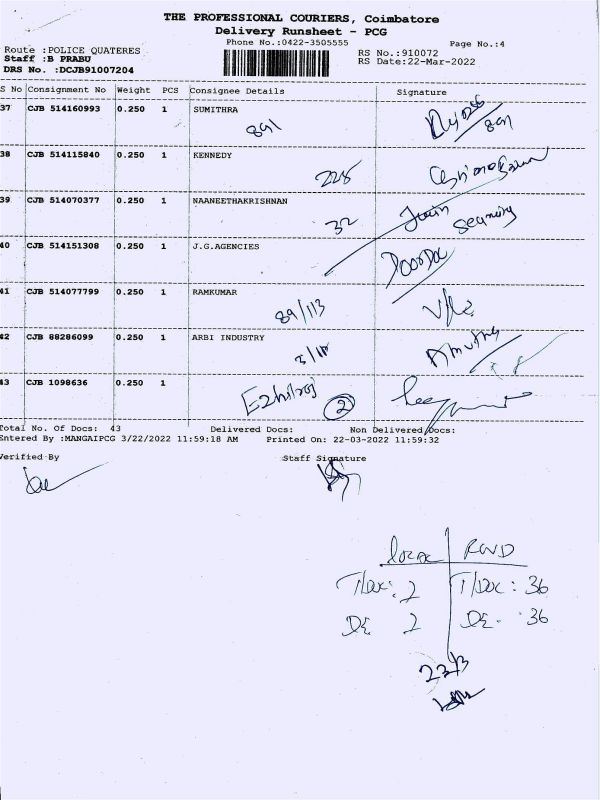 THE PROFESSIONAL COURIERS, Coimbatore
Delivery Runsheet - PCG
Phone No.:0422-3505555
Page No.:4
Route :POLICE QUATERES
RS No.:910072
Staff :B PRABU
RS Date:22-Mar-2022
DRS No. :DCJB91007204
S No Consignment No Weight PCS Consignee Details Signature
37 CJB 514160993 0.250 1 SUMITHRA
891 891
38 CJB 514115840 0.250 1 KENNEDY
228
39 CJB 514070377 0.250 1 NAANEETHAKRISHNAN
32
40 CJB 514151308 0.250 1 J.G.AGENCIES
41 CJB 514077799 0.250 1 RAMKUMAR
89/113
42 CJB 88286099 0.250 1 ARBI INDUSTRY
Amutha
43 CJB 1098636 0.250 1
Ezhilraj 2
Total No. Of Docs: 43 Delivered Docs: Non Delivered Docs:
Entered By :MANGAIPCG 3/22/2022 11:59:18 AM Printed On: 22-03-2022 11:59:32
Verified By Staff Signature
local
T/Doc: 2 T/Doc: 36
DE 2 DE. 36
22/3